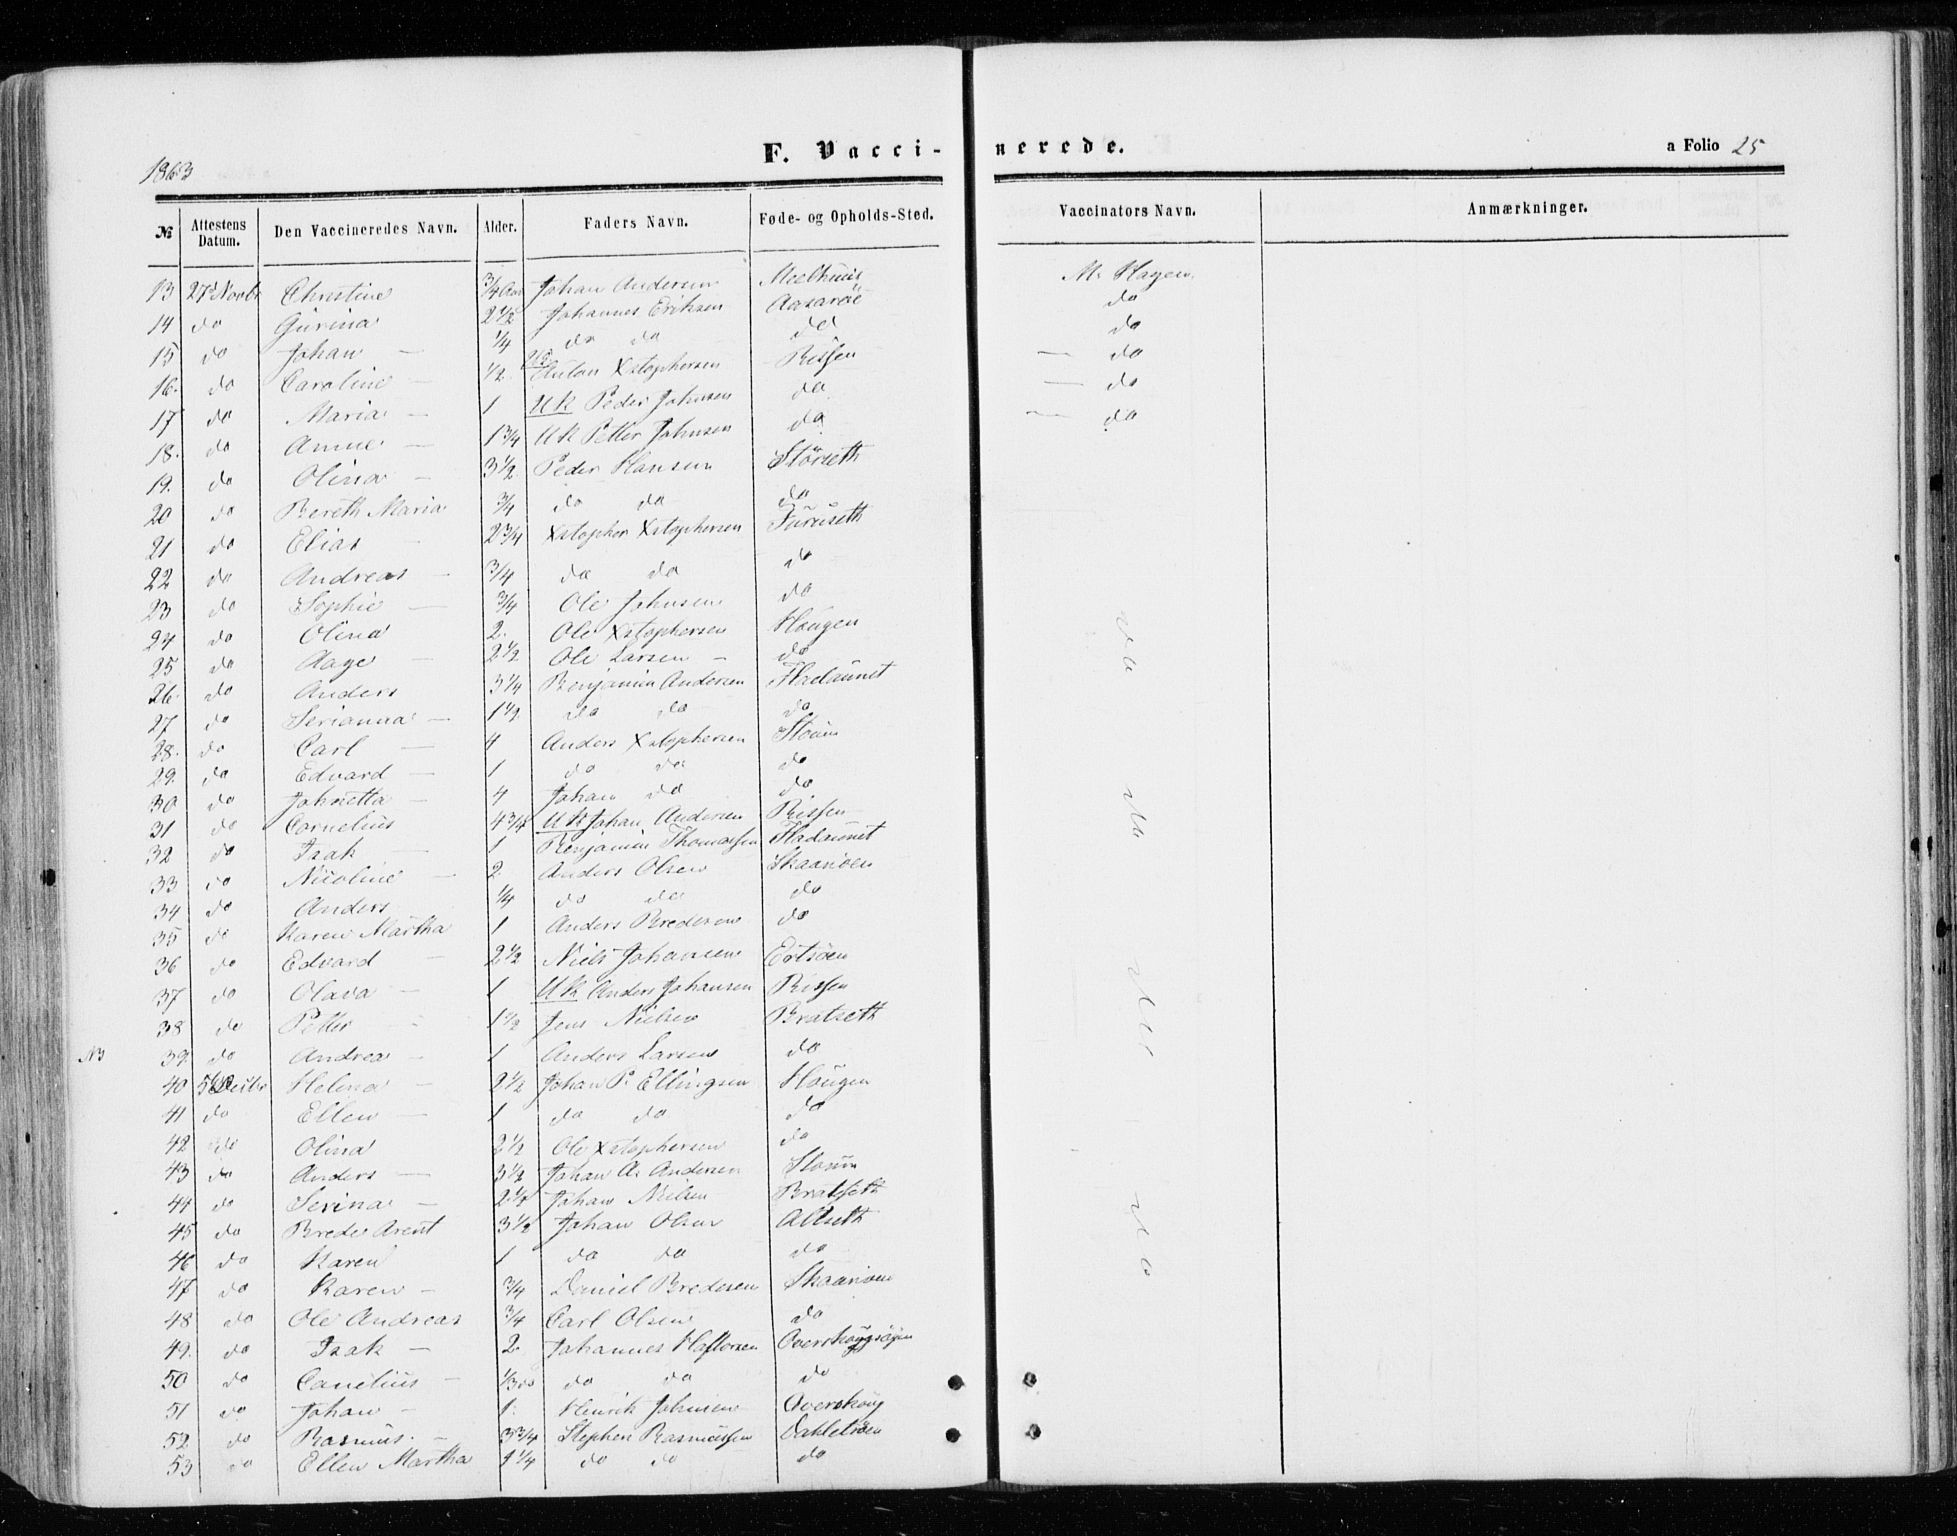 1863
F. Vacci- nerede.
a Folio 25
№ | Attestens Datum. | Den Vaccineredes Navn. | Alder. | Faders Navn. | Føde- og Opholds-Sted. | Vaccinators Navn. | Anmærkninger.
13 27d Novbr Christine 3/4 Aar Johan Andersen Meelhuus M. Hagen
14 do Gurina 2 1/2 Johannes Eriksen Aasarøe do
15 do Johan — 1/4 do do do do
16. do Caroline — 1/2 UK Anton Xstophersen Rissen — do
17 do Maria — 1 UK Peder Johnsen do — do
18. do Anne — 1 3/4 UK Petter Johnsen do — do
19. do Olina — 3 1/2 Peder Hansen Störseth
20 do Bereth Maria 3/4 do do do
21 do Elias — 2 3/4 Xstopher Xstophersen Furuseth
22 do Andreas — 3/4 do do do
23 do Sophie — 3/4 Ole Johnsen do
24 do Olina 2. Ole Xstophersen Hougen do
25 do Aage — 2 1/2 Ole Larsen — do
26. do Anders 3 1/4 Benjamin Andersen Fladaunet
27 do Serianna — 1 1/2 do do do
28. do Carl — 4 Anders Xstophersen Stoum
29. do Edvard — 1 do do do
30 do Johnetta — 4 Johan do do do
31 do Cornelius 4 3/4 UK Johan Andersen Rissen
32 do Isak — 1 Benjamin Thomassen Fladaunet
33 do Nicoline — 2 Anders Olsen Skaanøen
34 do Anders 1/4 do do do
35 do Karen Martha 1 Anders Bredesen do
36 do Edvard — 2 1/2 Niels Johansen Ertsøen
37 do Olava — 1 UK Anders Johansen Rissen do
38 do Petter 1 1/2 Jens Nielsen Bratseth
39. do Andrea — 1 Anders Larsen do
40 5te Decbr Helena — 2 1/2 Johan P. Ellingsen Hougen
41 do Ellen — 1 do do do
42 do Olina 2 1/2 Ole Xstophersen do
43 do Anders — 3 1/2 Johan A. Andersen Stoum
44 do Serina — 2 1/4 Johan Nielsen Bratseth do
45 do Brede Arent 3 1/2 Johan Olsen Altseth
46 do Karen 1 do do do
47 do Karen — 3/4 Daniel Bredesen Skaanøen
48 do Ole Andreas 3/4 Carl Olsen do
49. do Isak — 2. Johannes Haftorsen
50 do — 1/3 do do do do
51 do Johan — 1. Henrik Johnsen Overskoug
52 do Rasmus. — 3 3/4 Stephen Rasmussen
53 do Ellen Martha 1 1/4 do do do